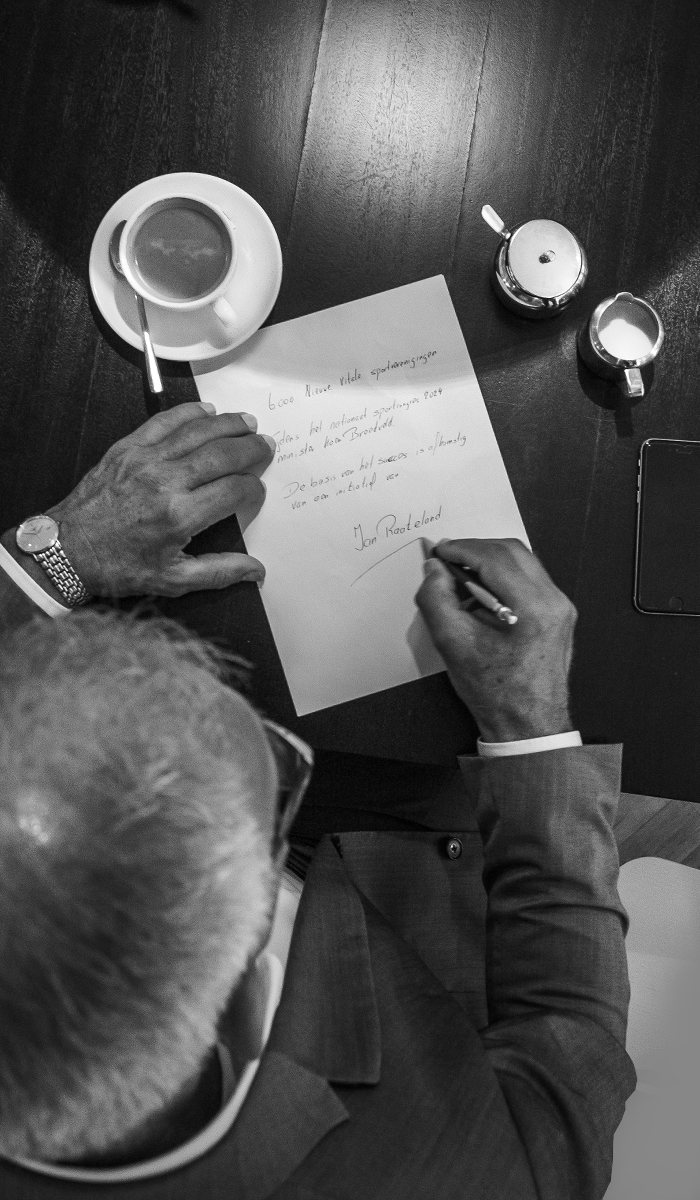 6000 Nieuwe Vitale sportverenigingen
het nationaal sportcongres 2024
minister Koen Breedveld.
De basis van het succes is afkomstig
van een initiatief van
Jan Raateland